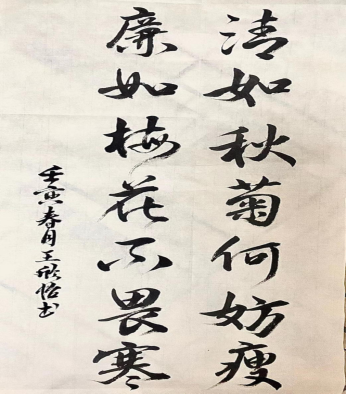 清如秋菊何妨瘦
廉如梅花不畏寒
壬寅春月王欣悟书